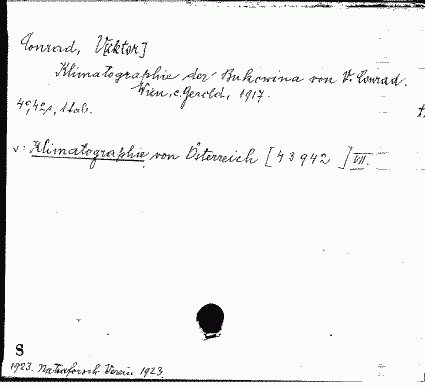 Conrad, Viktor]
Klimatographie der Bukowina von V. Conrad.
Wien, C. Gerold, 1917.
4°, 42 s, 1 tab.
v: Klimatographie von Österreich [43942] VII.
S
1923. Naturforsch. Verein 1923.